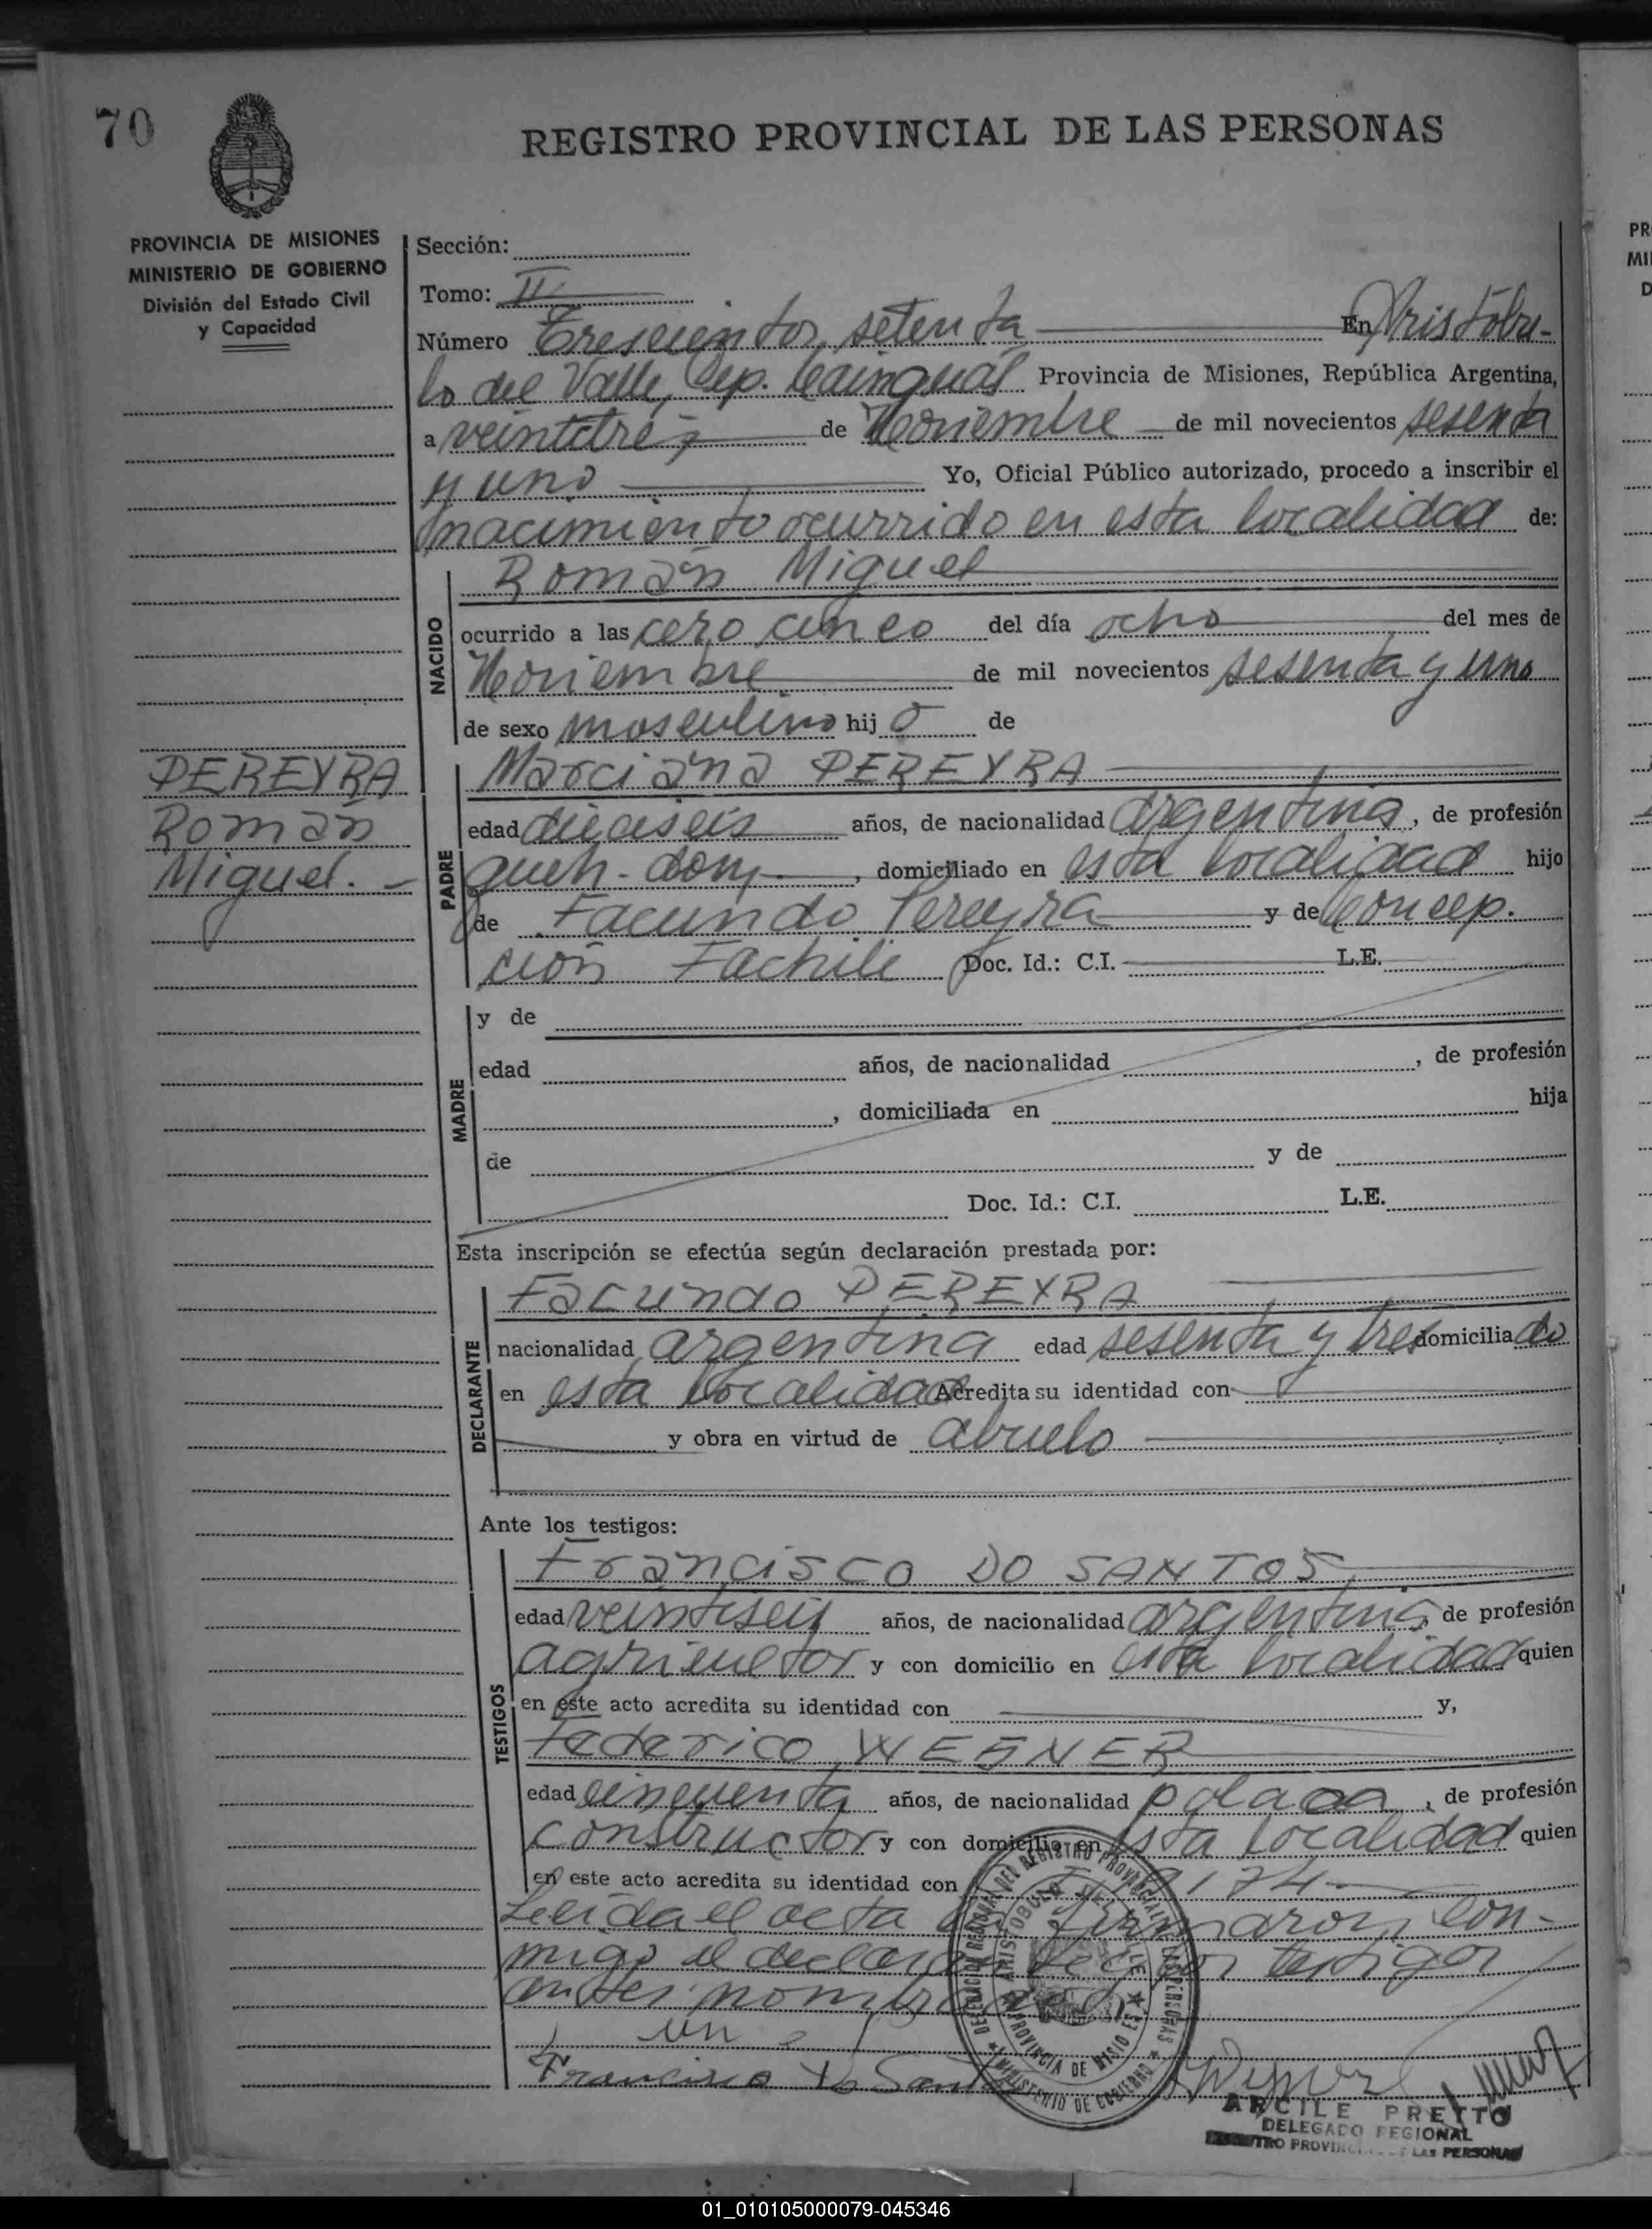 70
REGISTRO PROVINCIAL DE LAS PERSONAS
PROVINCIA DE MISIONES
MINISTERIO DE GOBIERNO
División del Estado Civil
y Capacidad
Sección:
Tomo: II
Número Trescientos setenta En Aristóbu-
lo del Valle, Dep. Cainguás Provincia de Misiones, República Argentina,
a veintitrés de Noviembre de mil novecientos sesenta
y uno Yo, Oficial Público autorizado, procedo a inscribir el
nacimiento ocurrido en esta localidad de:
Román Miguel
NACIDO
ocurrido a las cero cinco del día ocho del mes de
Noviembre de mil novecientos sesenta y uno
de sexo masculino hijo de
PEREYRA
Román
Miguel.
PADRE
Marciana PEREYRA
edad dieciseis años, de nacionalidad argentina, de profesión
queh. dom. , domiciliado en esta localidad hijo
de Facundo Pereyra y de Concep.
ción Fachile Doc. Id.: C.I. L.E.
MADRE
y de
edad años, de nacionalidad , de profesión
, domiciliada en hija
de y de
Doc. Id.: C.I. L.E.
Esta inscripción se efectúa según declaración prestada por:
DECLARANTE
Facundo PEREYRA
nacionalidad argentina edad sesenta y tres domiciliado
en esta localidad Acredita su identidad con
y obra en virtud de abuelo
Ante los testigos:
TESTIGOS
Francisco DO SANTOS
edad veintiseis años, de nacionalidad argentina, de profesión
agricultor y con domicilio en esta localidad quien
en este acto acredita su identidad con y,
Federico WEGNER
edad cincuenta años, de nacionalidad polaca, de profesión
constructor y con domicilio en esta localidad quien
en este acto acredita su identidad con 174
Leída el acta firmaron con-
migo el declarante y los testigos
antes nombrados
Francisco Do Santos
ARCILE PRETTO
DELEGADO REGIONAL
REGISTRO PROVINCIAL DE LAS PERSONAS
DELEGACION REGIONAL DEL REGISTRO PROVINCIAL DE LAS PERSONAS
ARISTOBULO DEL VALLE
PROVINCIA DE MISIONES
MINISTERIO DE GOBIERNO
01_010105000079-045346